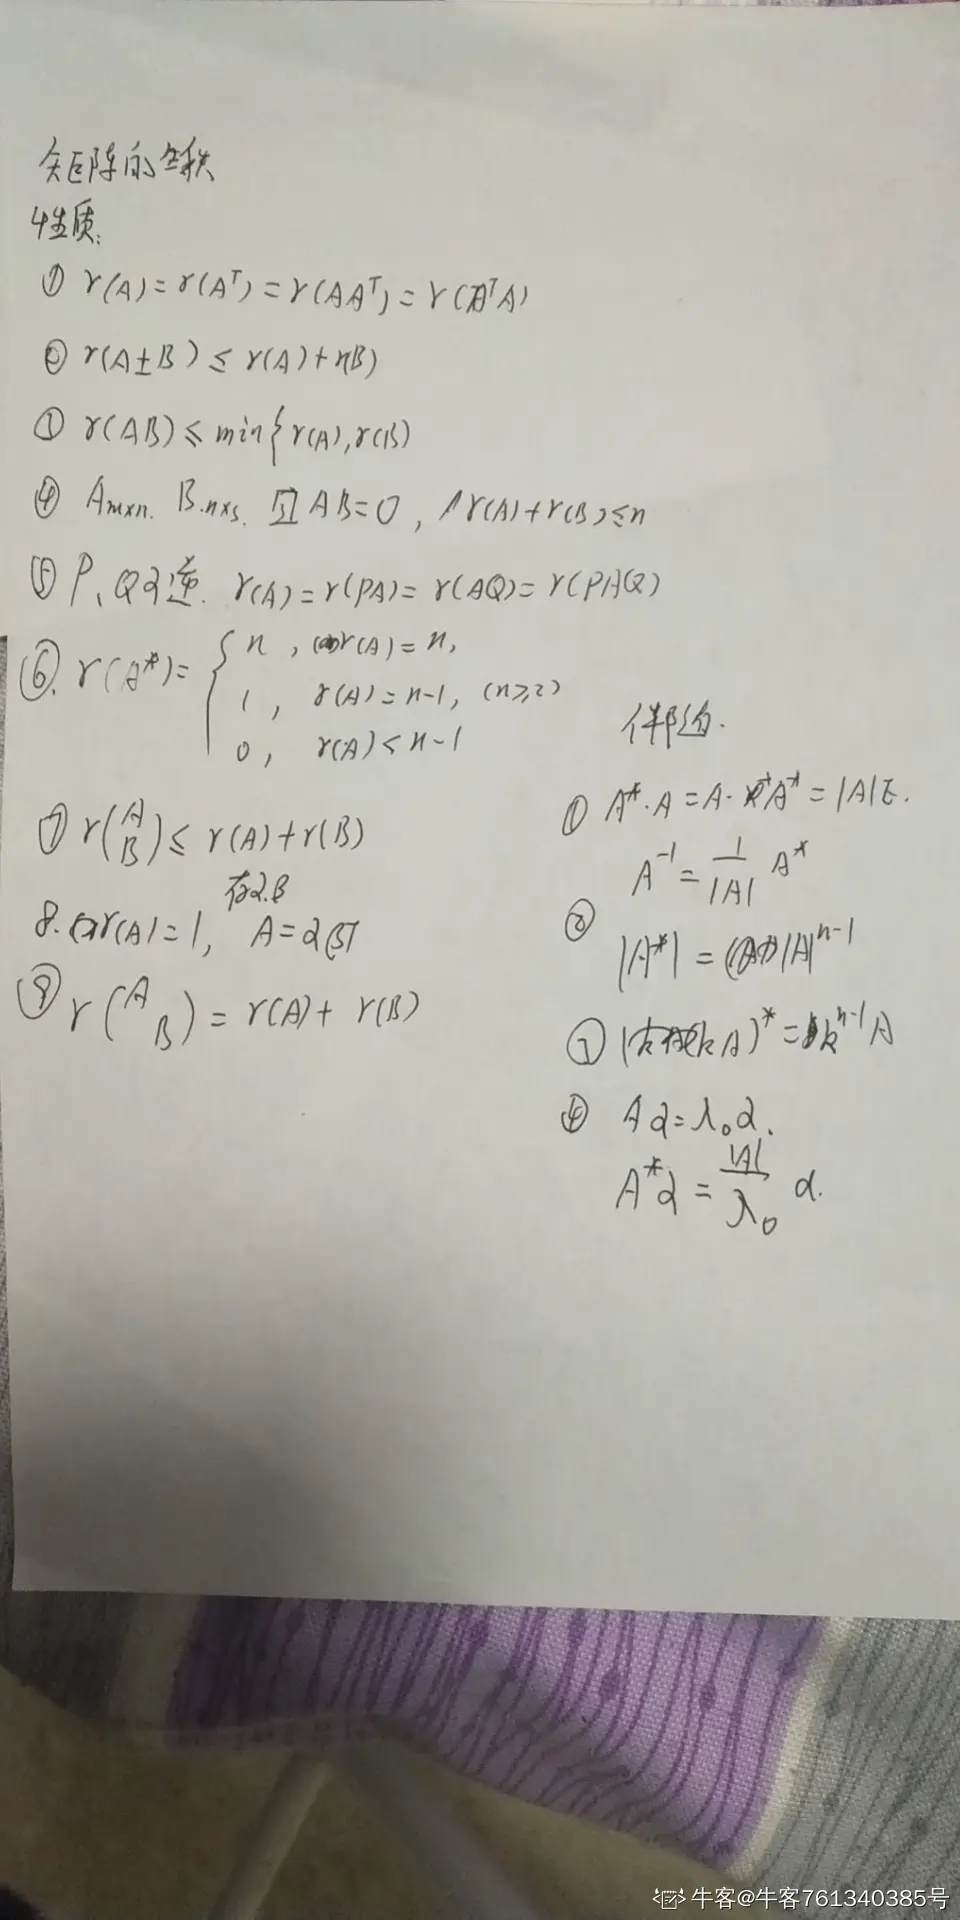 矩阵的秩
性质:
① r(A)=r(Aᵀ)=r(AAᵀ)=r(AᵀA)
② r(A±B)≤r(A)+r(B)
③ r(AB)≤min{r(A),r(B)
④ Am×n. B.n×s. 且AB=0, r(A)+r(B)≤n
⑤ P、Q可逆. r(A)=r(PA)=r(AQ)=r(PAQ)
⑥. r(A*)= { n , r(A)=n,
1, r(A)=n-1, (n≥2)
0, r(A)<n-1
⑦ r(A
B)≤r(A)+r(B)
存α.β
8. r(A)=1, A=αβᵀ
⑨ r(A
B)=r(A)+r(B)
伴随.
① A*·A=A·A*=|A|E.
A⁻¹=1/|A| A*
② |A*|=|A|ⁿ⁻¹
③ (kA)*=kⁿ⁻¹A
④ Aα=λ₀α.
A*α=|A|/λ₀ α.
牛客@牛客761340385号